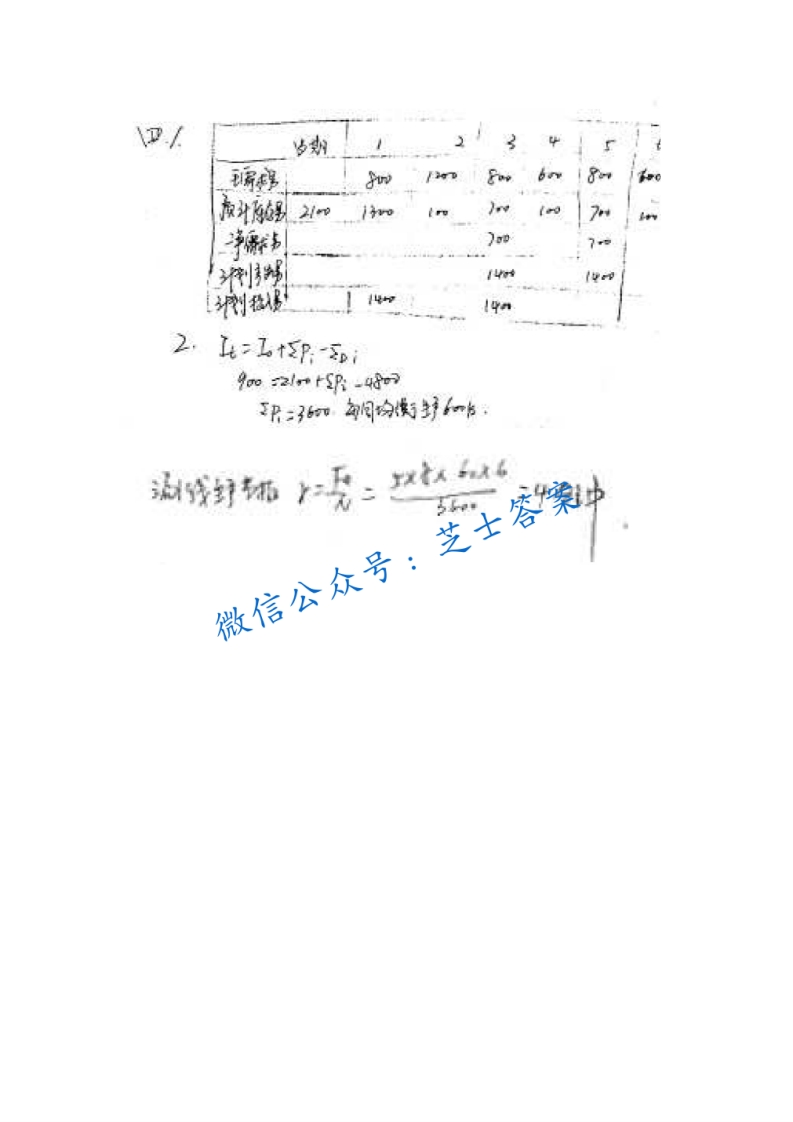 四、1.
当期 1 2 3 4 5
毛需求量 800 1200 800 600 800 600
预计库存量 2100 1300 100 700 100 700 100
净需求量 700 700
计划交货量 1400 1400
计划投入量 1400 1400
2. It=I0+ΣPi-ΣDi
900=2100+ΣPi-4800
ΣPi=3600 每周均衡生产600台.
流水线生产节拍 r=Fe/N=5×8×60×6/3600=4分钟
微信公众号：芝士答案